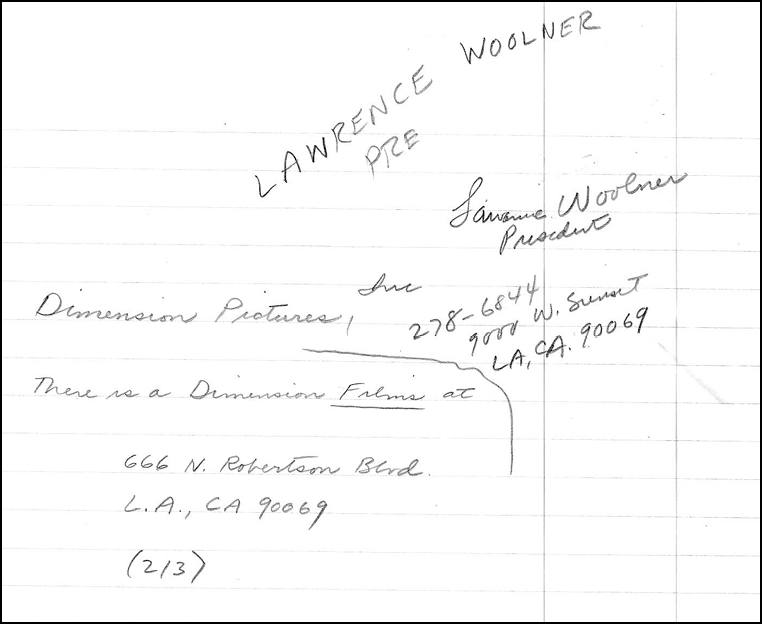 LAWRENCE WOOLNER
PRE
Lawrence Woolner
President
Dimension Pictures, Inc
278-6844
9000 W. Sunset
LA, CA. 90069
There is a Dimension Films at
666 N. Robertson Blvd.
L.A., CA 90069
(213)